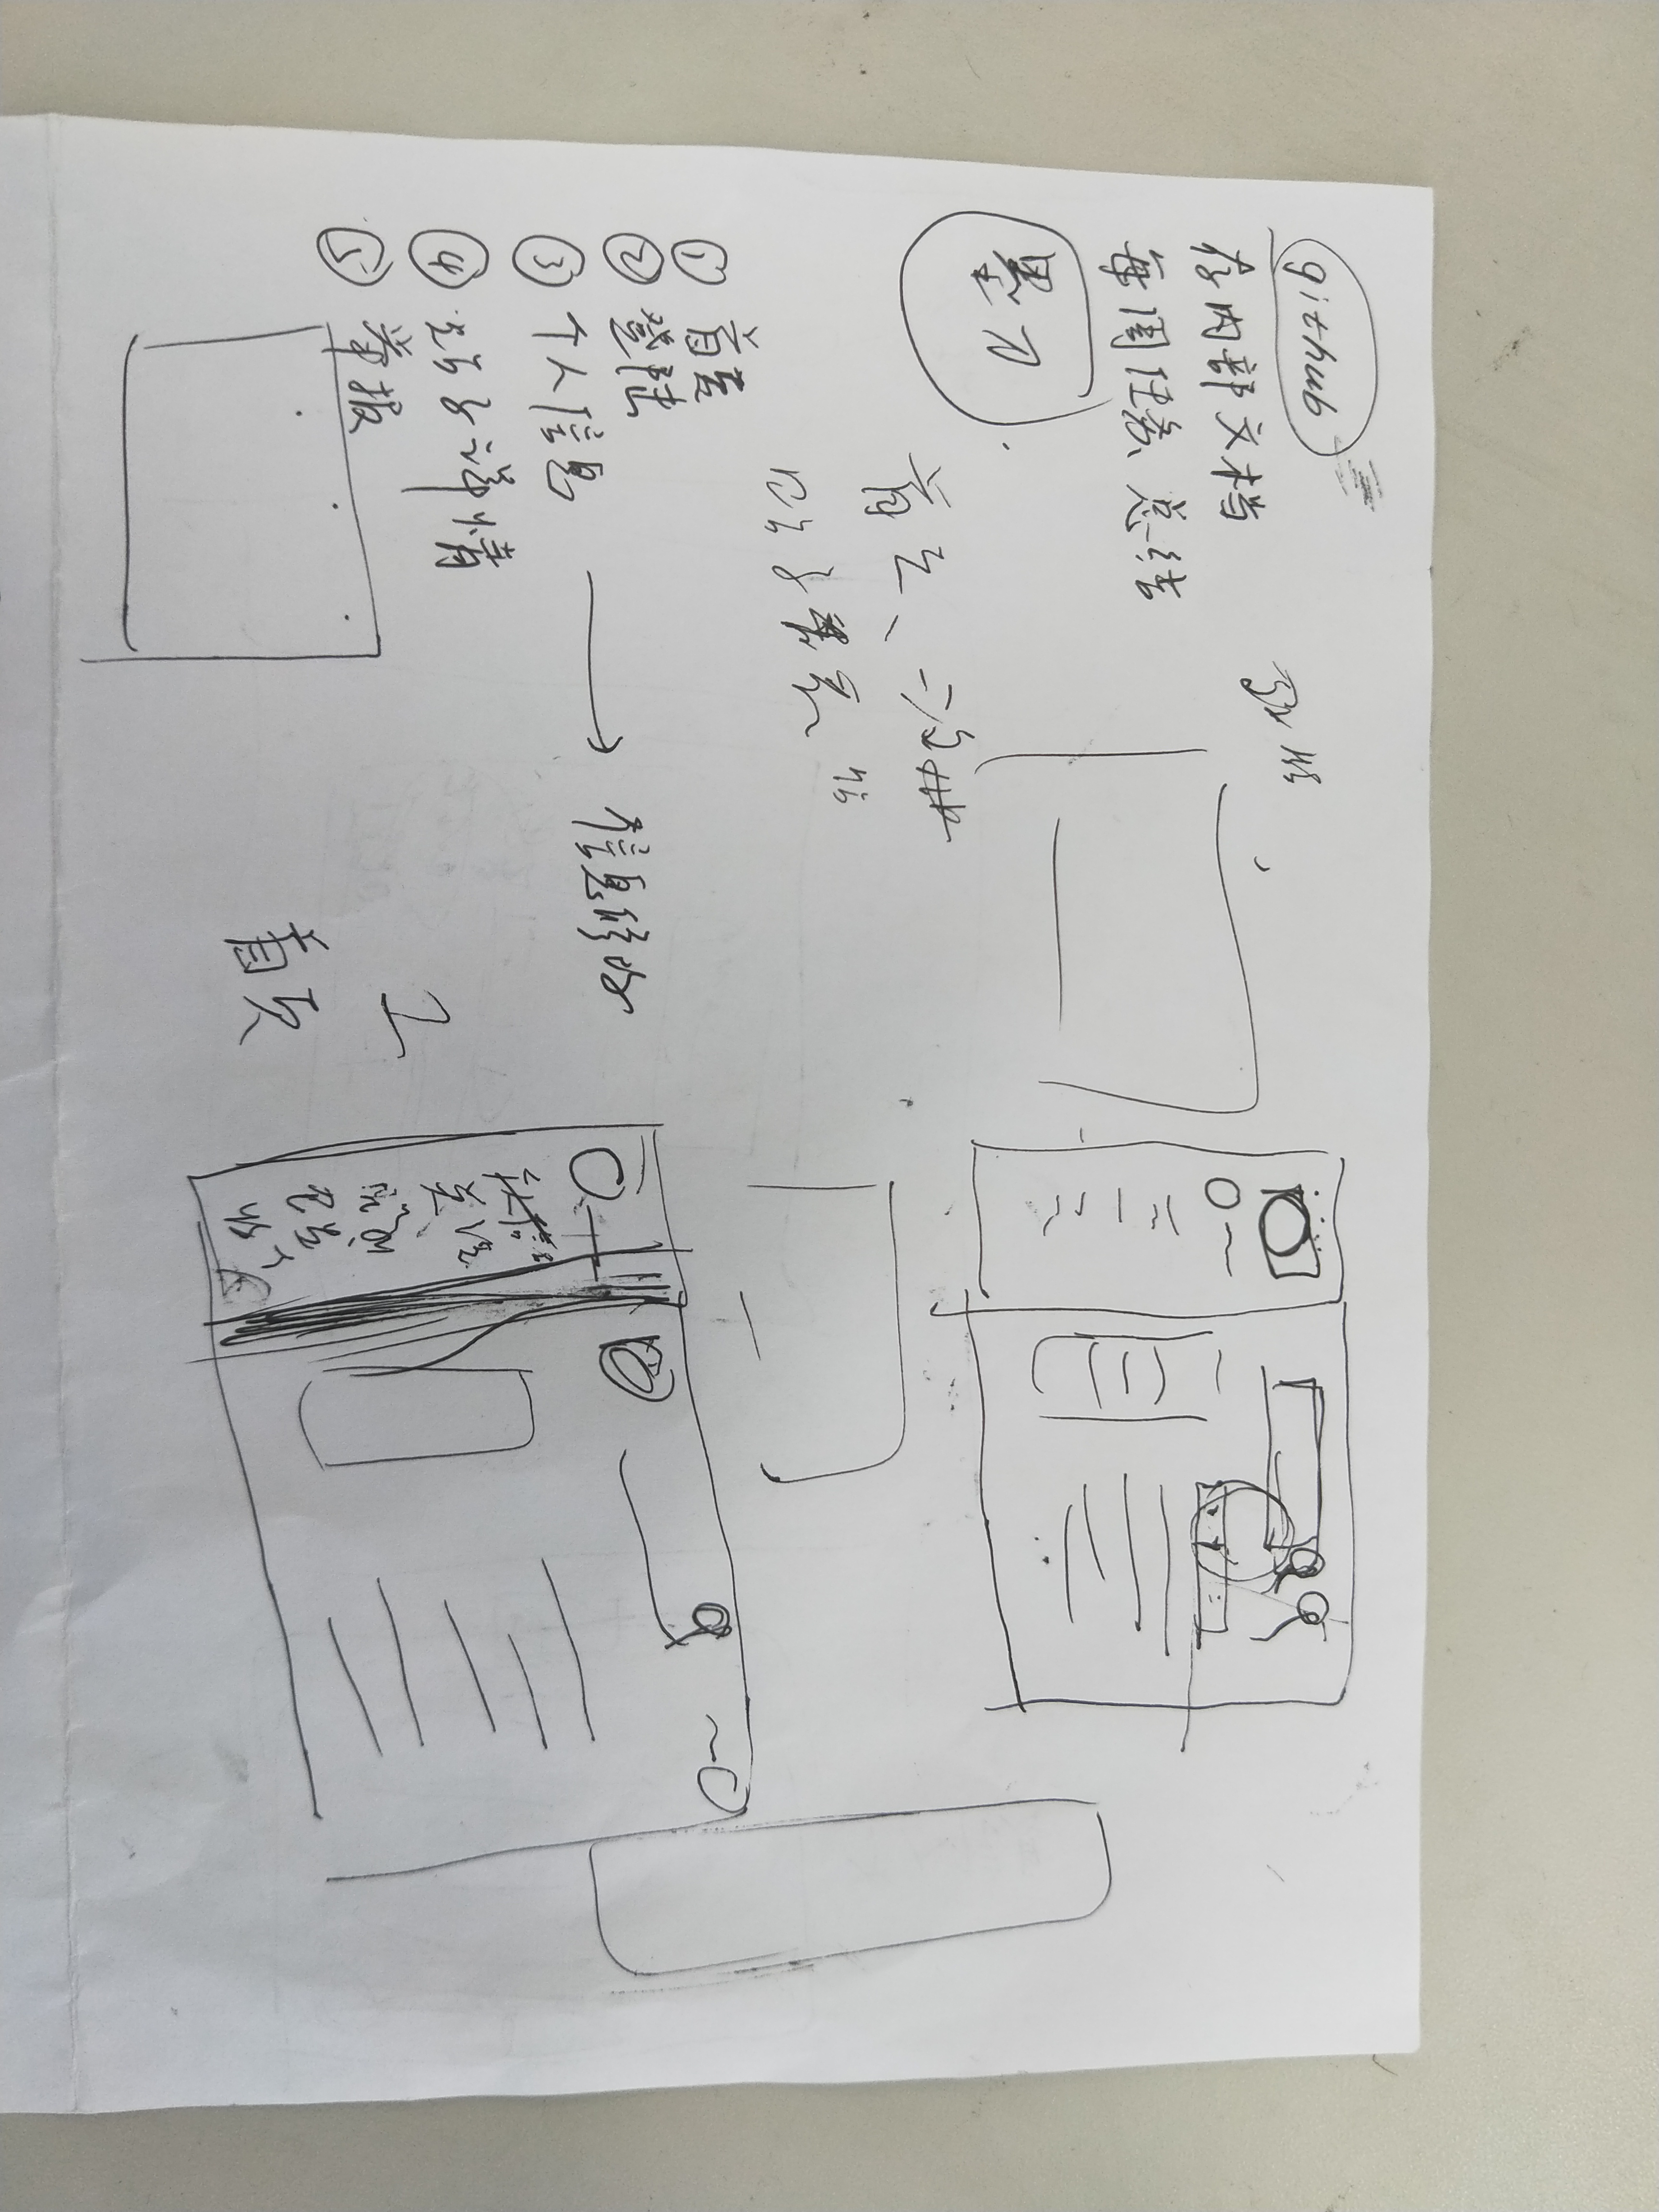 github
存内部文档
每周任务、总结
墨刀
首页、
贴子
① 首页
② 登陆
③ 个人信息
信息修改
④ 贴子详情
⑤ 举报
首页
关注